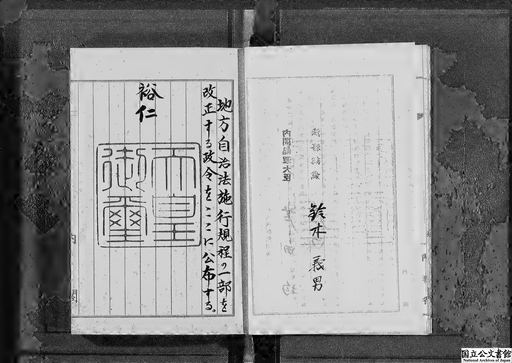 鈴木義男
地方自治法施行規程の一部を
改正する政令をここに公布する。
裕仁
天皇
御璽
国立公文書館
National Archives of Japan